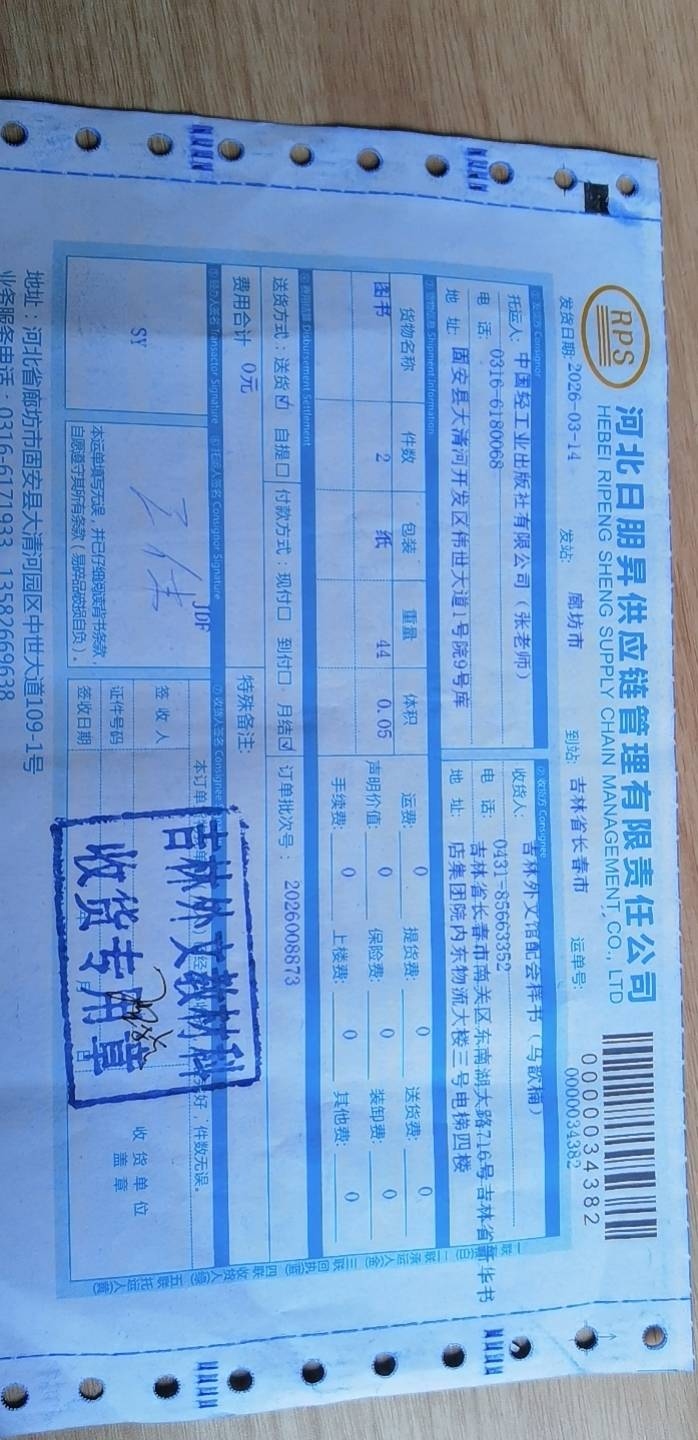 RPS
河北日朋昇供应链管理有限责任公司
HEBEI RIPENG SHENG SUPPLY CHAIN MANAGEMENT, CO., LTD
0000034382
发货日期: 2026-03-14 发站: 廊坊市 到站: 吉林省长春市 运单号: 0000034382
①发货方 Consignor
托运人: 中国轻工业出版社有限公司(张老师)
电 话: 0316-6180068
地 址: 固安县大清河开发区伟世大道1号院9号库
②收货方 Consignee
收货人: 吉林外文馆配会样书(马歆楠)
电 话: 0431-85663352
地 址: 吉林省长春市南关区东南湖大路716号吉林省新华书
店集团院内东物流大楼三号电梯四楼
③货物信息 Shipment Information
货物名称 件数 包装 重量 体积
图书 2 纸 44 0.05
运费: 0 提货费: 0 送货费: 0
声明价值: 0 保险费: 0 装卸费: 0
手续费: 0 上楼费: 0 其他费: 0
④费用结算 Disbursement Settlement
送货方式: 送货☑ 自提□ 付款方式: 现付□ 到付□ 月结☑ 订单批次号: 2026008873
费用合计 0元 特殊备注:
⑤经办人签名 Transactor Signature
SY
⑥托运人签名 Consignor Signature
JDF
王伟
本运单填写无误,并已仔细阅读背书条款,
自愿遵守其所有条款(易碎品破损自负)。
⑦收货人签名 Consignee
本订单 好,件数无误。
签 收 人
证件号码
签收日期
收 货 单 位
盖 章
吉林外文教材科
收货专用章
地址:河北省廊坊市固安县大清河园区中世大道109-1号
业务服务电话:0316-6171933 13582669638